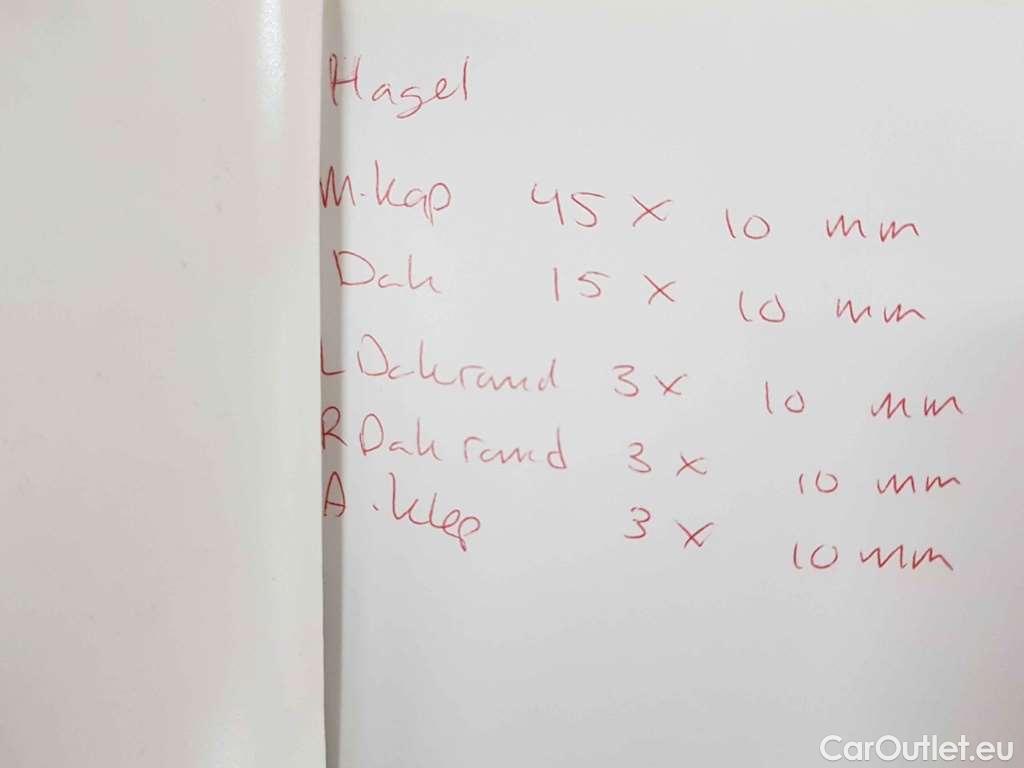 Hagel
M.kap 45 x 10 mm
Dak 15 x 10 mm
L Dakrand 3 x 10 mm
R Dakrand 3 x 10 mm
A.klep 3 x 10 mm
CarOutlet.eu